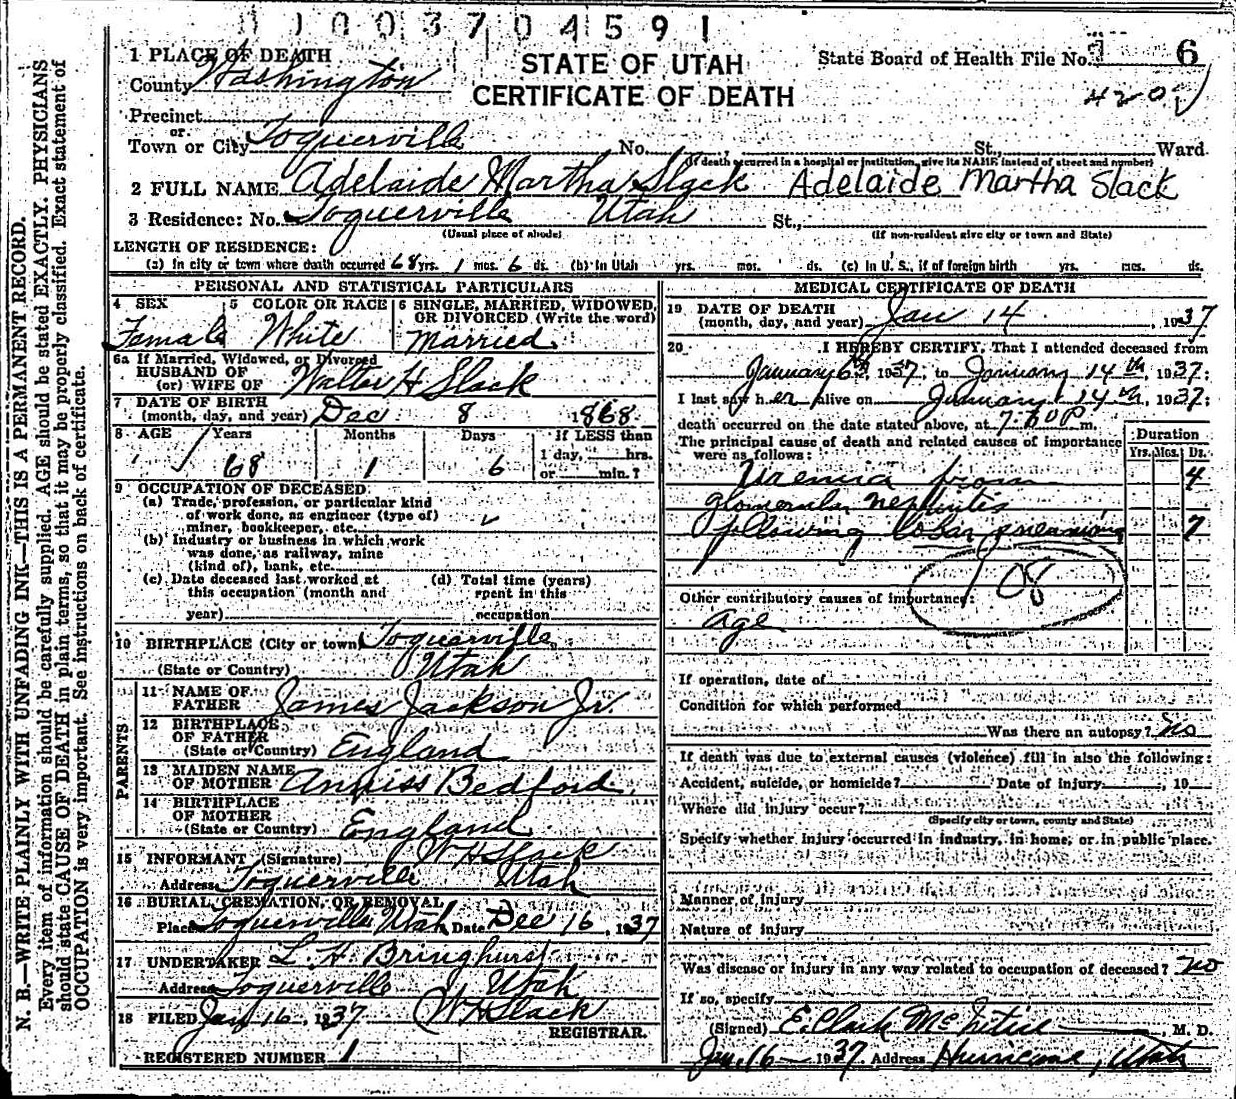 1003704591
1 PLACE OF DEATH
STATE OF UTAH
CERTIFICATE OF DEATH
State Board of Health File No. 6
4201
County Washington
Precinct
or
Town or City Toquerville No. St., Ward
(If death occurred in a hospital or institution, give its NAME instead of street and number)
2 FULL NAME Adelaide Martha Slack Adelaide Martha Slack
3 Residence: No. Toquerville Utah St.,
(Usual place of abode) (If non-resident give city or town and State)
LENGTH OF RESIDENCE:
(a) In city or town where death occurred 68 yrs. 1 mos. 6 ds. (b) In Utah yrs. mos. ds. (c) In U. S., if of foreign birth yrs. mos. ds.
PERSONAL AND STATISTICAL PARTICULARS
4 SEX 5 COLOR OR RACE 6 SINGLE, MARRIED, WIDOWED, OR DIVORCED (Write the word)
Female White Married
6a If Married, Widowed, or Divorced
HUSBAND OF
(or) WIFE OF Walter H Slack
7 DATE OF BIRTH
(month, day, and year) Dec 8 1868
8 AGE Years Months Days If LESS than
1 day, hrs.
68 1 6 or min.?
9 OCCUPATION OF DECEASED
(a) Trade, profession, or particular kind
of work done, as engineer (type of)
miner, bookkeeper, etc.
(b) Industry or business in which work
was done, as railway, mine
(kind of), bank, etc.
(c) Date deceased last worked at
this occupation (month and
year)
(d) Total time (years)
spent in this
occupation
10 BIRTHPLACE (City or town) Toquerville,
(State or Country) Utah
PARENTS
11 NAME OF
FATHER James Jackson Jr.
12 BIRTHPLACE
OF FATHER
(State or Country) England
13 MAIDEN NAME
OF MOTHER Anniss Bedford
14 BIRTHPLACE
OF MOTHER
(State or Country) England
15 INFORMANT (Signature) W H Slack
Address Toquerville Utah
16 BURIAL, CREMATION, OR REMOVAL
Place Toquerville Utah Date Dec 16, 1937
17 UNDERTAKER L. H. Bringhurst
Address Toquerville Utah
18 FILED Jan 16, 1937 W H Slack
REGISTRAR.
REGISTERED NUMBER 1
MEDICAL CERTIFICATE OF DEATH
19 DATE OF DEATH
(month, day, and year) Jan 14, 1937
20 I HEREBY CERTIFY, That I attended deceased from
January 6th, 1937, to January 14th, 1937;
I last saw her alive on January 14th, 1937;
death occurred on the date stated above, at P m.
The principal cause of death and related causes of importance
were as follows:
Duration
Yrs. Mos. Ds.
Uremia from 4
glomerular nephritis
following lobar pneumonia 7
108
Other contributory causes of importance:
Age
If operation, date of
Condition for which performed
Was there an autopsy? No
If death was due to external causes (violence) fill in also the following:
Accident, suicide, or homicide? Date of injury , 19
Where did injury occur?
(Specify city or town, county and State)
Specify whether injury occurred in industry, in home, or in public place.
Manner of injury
Nature of injury
Was disease or injury in any way related to occupation of deceased? No
If so, specify
(Signed) E. Clark McIntire, M. D.
Jan. 16 1937 Address Hurricane, Utah
N. B.—WRITE PLAINLY WITH UNFADING INK—THIS IS A PERMANENT RECORD.
Every item of information should be carefully supplied. AGE should be stated EXACTLY. PHYSICIANS
should state CAUSE OF DEATH in plain terms, so that it may be properly classified. Exact statement of
OCCUPATION is very important. See instructions on back of certificate.